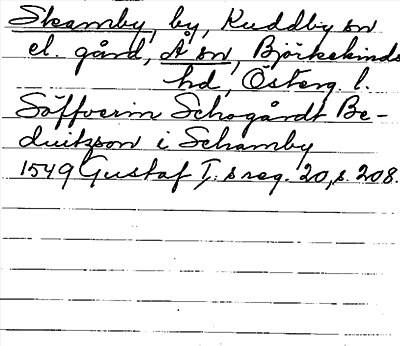 Skamby, by, Kuddby sn
el. gård, Å sn, Björkekinds
hd, Österg. l.
Söffverin Schogårdt Be-
duitzson i Schamby
1549 Gustaf I:s reg. 20, s. 208.